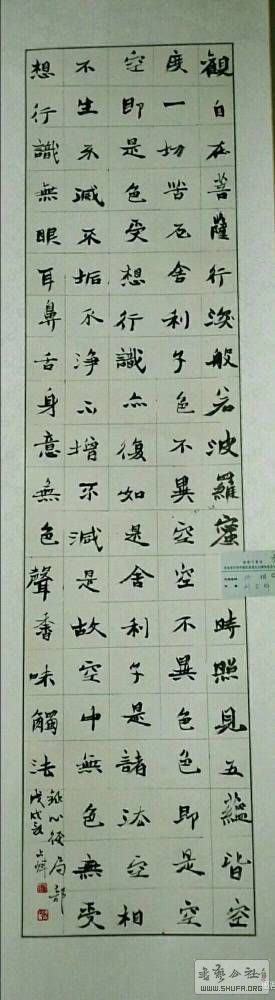 觀自在菩薩行深般若波羅蜜時照見五蘊皆空
度一切苦厄舍利子色不異空空不異色色即是空
空即是色受想行識亦復如是舍利子是諸法空相
不生不滅不垢不淨不增不減是故空中無色無受
想行識無眼耳鼻舌身意無色聲香味觸法
錄心經局部
戊戌
书艺公社
WWW.SHUFA.ORG